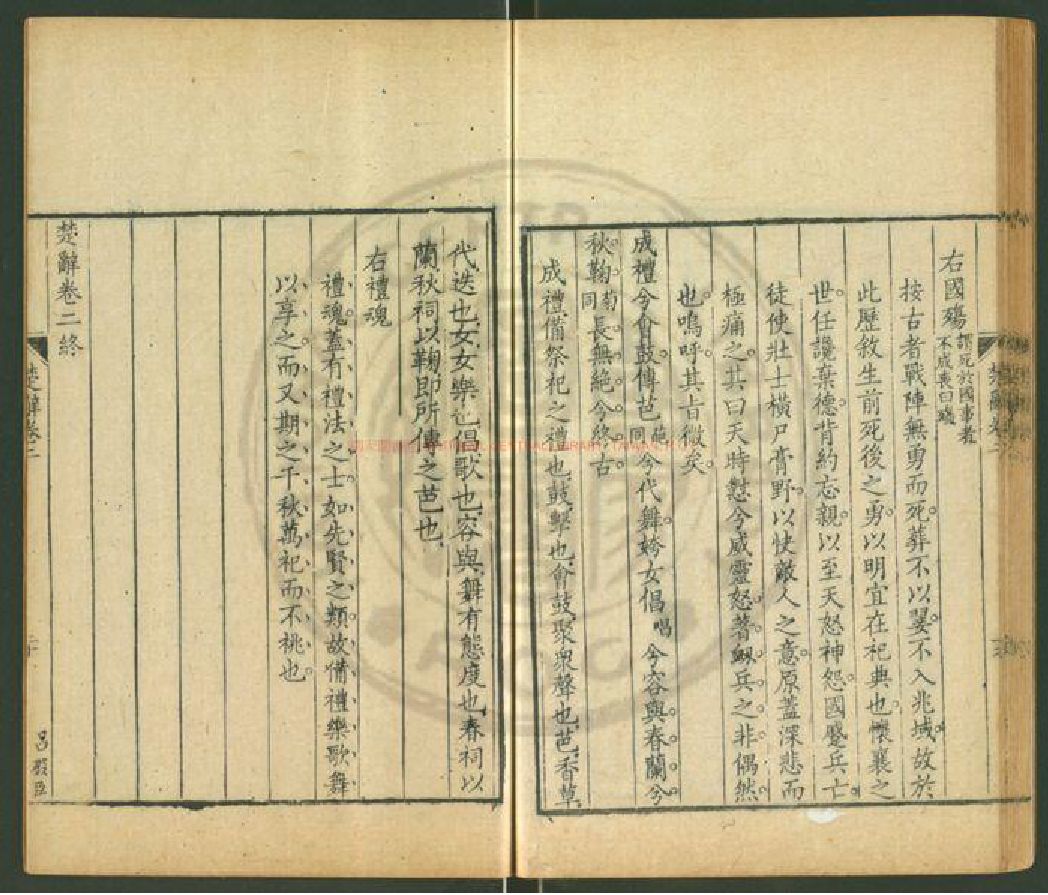 右國殤 謂死於國事者 不成喪曰殤
按古者戰陣無勇而死葬不以翣不入兆域故於
此歷敘生前死後之勇以明宜在祀典也懷襄之
世任讒棄德背約忘親以至天怒神怨國蹙兵亡
徒使壯士橫尸膏野以快敵人之意原蓋深悲而
極痛之其曰天時懟兮威靈怒著釁兵之非偶然
也嗚呼其旨微矣
成禮兮會鼓傳芭 葩同 兮代舞姱女倡 唱 兮容與春蘭兮
秋鞠 菊同 長無絕兮終古
成禮備祭祀之禮也鼓擊也會鼓聚衆聲也芭香草
代迭也女女樂也倡歌也容與舞有態度也春祠以
蘭秋祠以鞠即所傳之芭也
右禮魂
禮魂蓋有禮法之士如先賢之類故備禮樂歌舞
以享之而又期之千秋萬祀而不祧也
楚辭卷二終
楚辭卷二